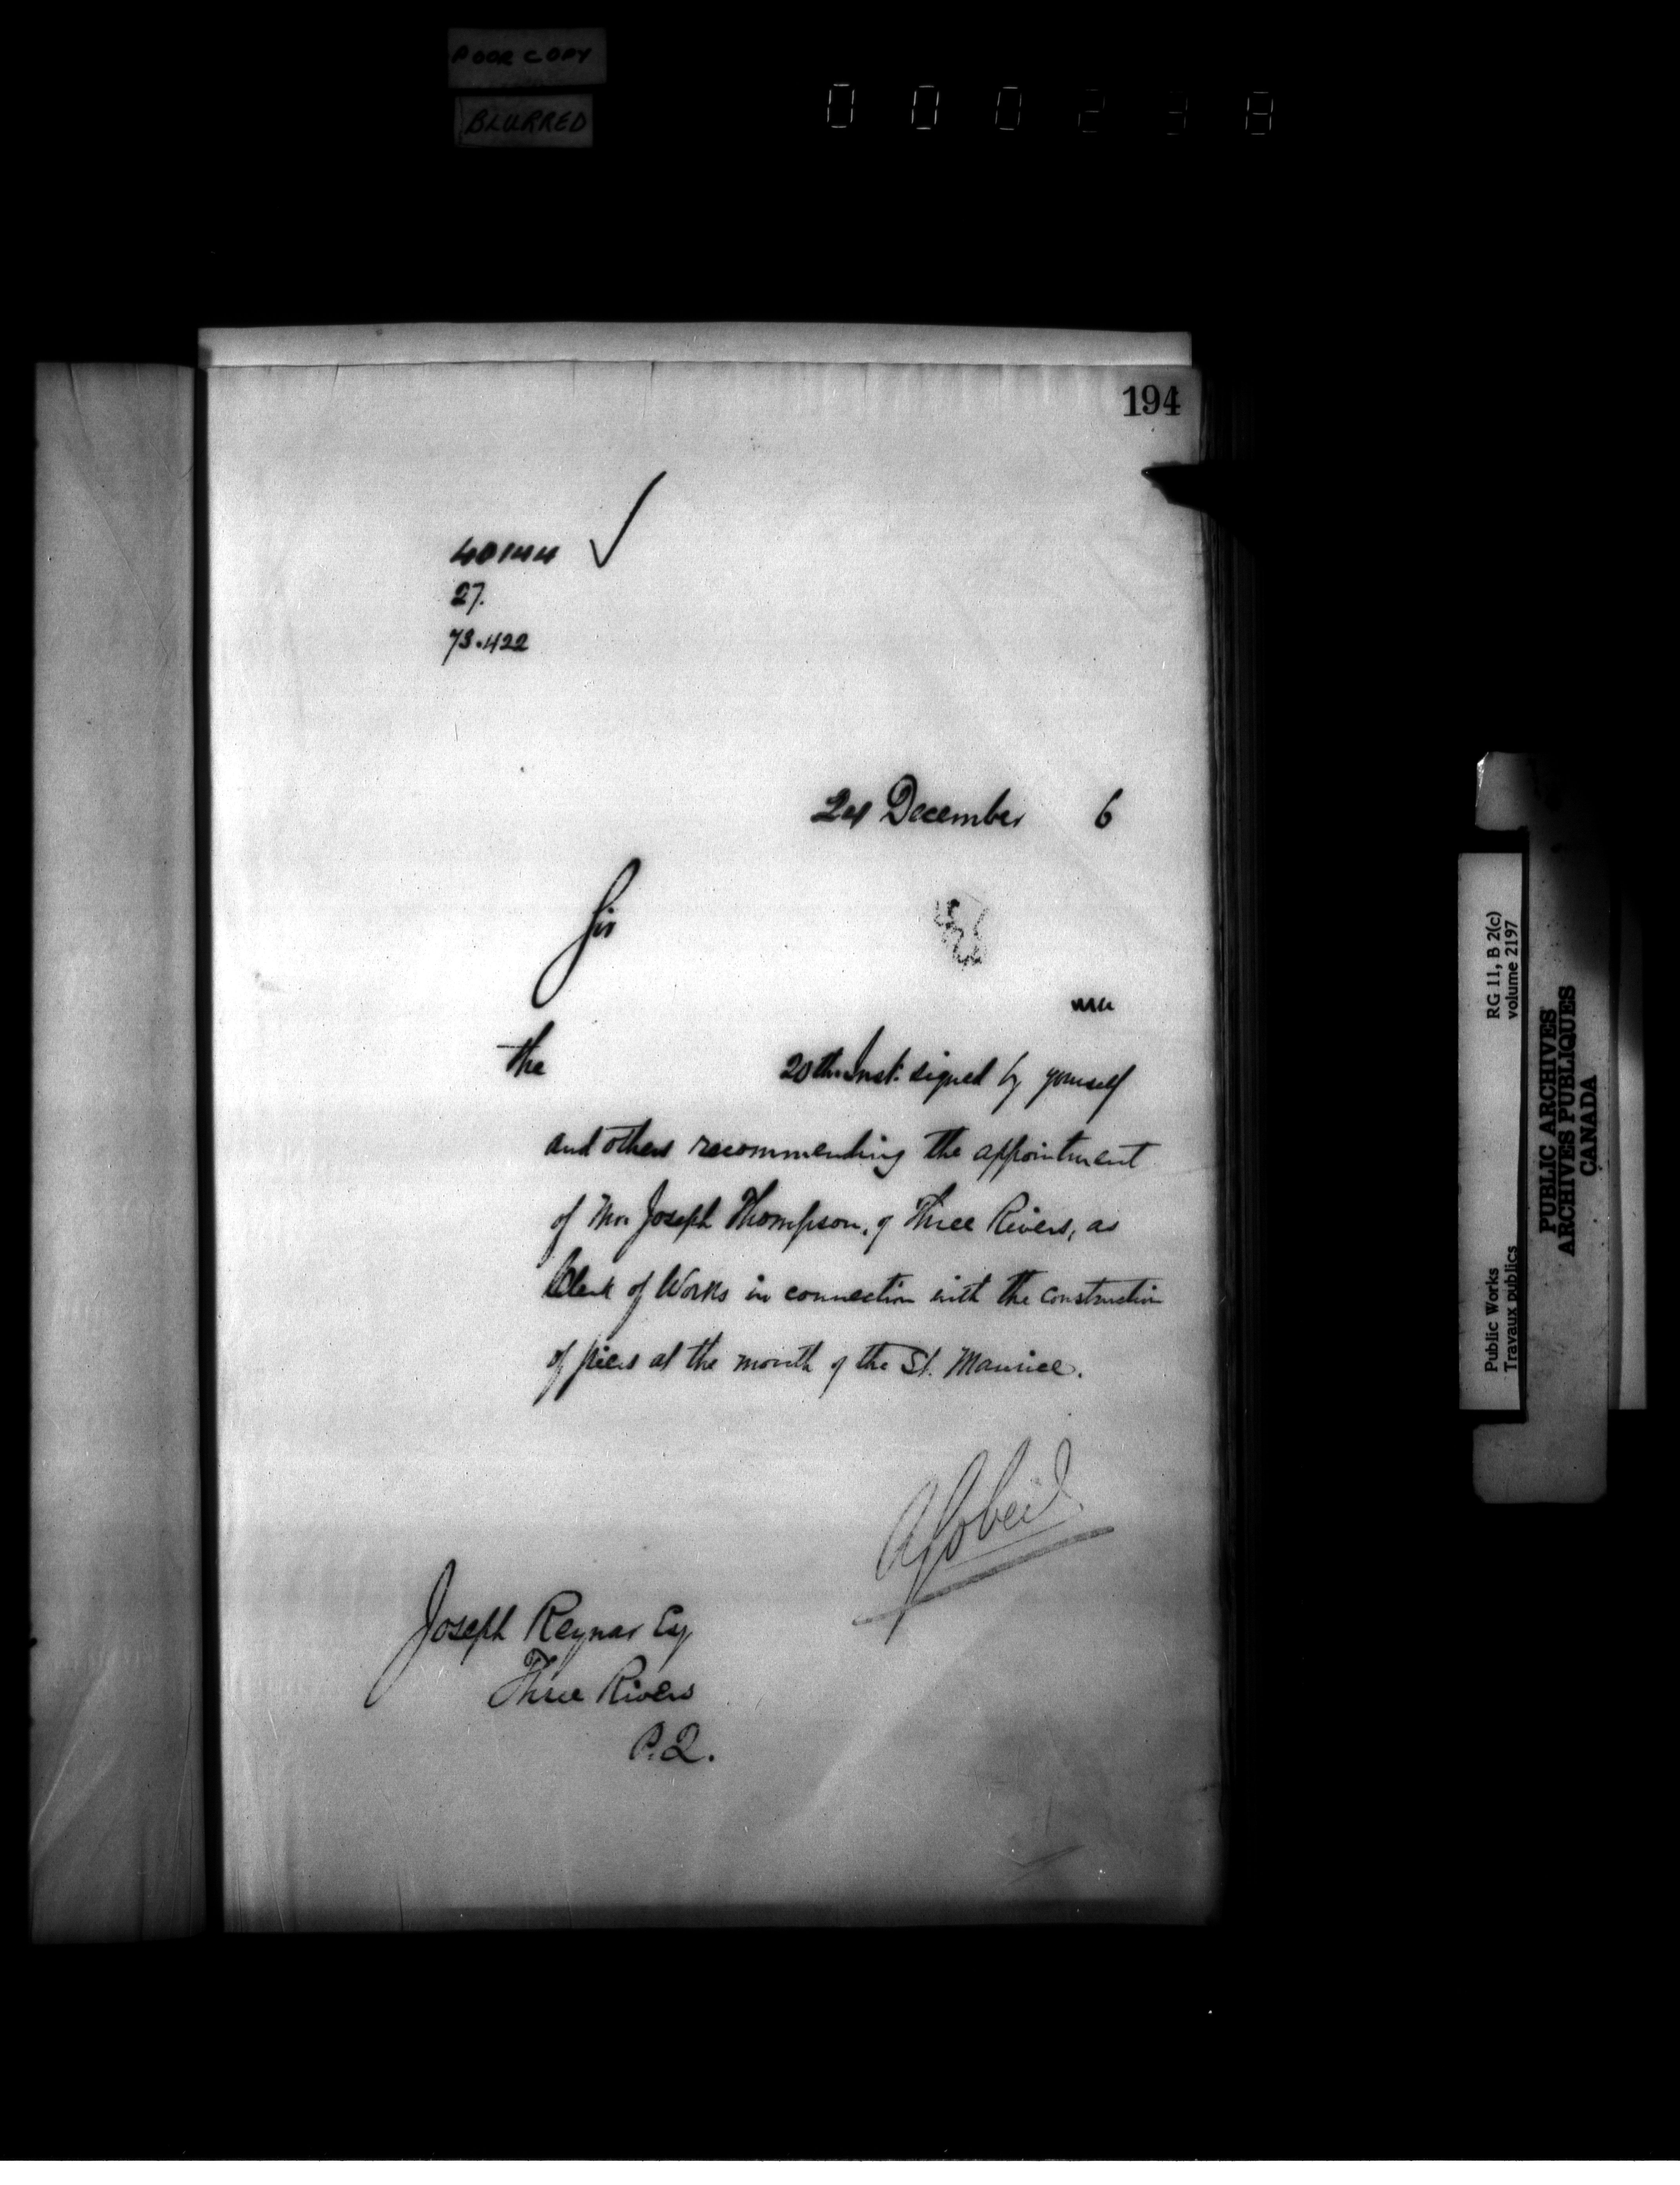 POOR COPY
BLURRED
0 0 0 2 3 8
194
40144 ✓
27.
73.422
24 December 6
Sir
me
the 20th Inst. signed by yourself
and others recommending the appointment
of Mr. Joseph Thompson, of Three Rivers, as
Clerk of Works in connection with the construction
of piers at the mouth of the St. Maurice.
AGobeil
Joseph Reynar Esq
Three Rivers
P.Q.
Public Works RG 11, B 2(c)
Travaux publics volume 2197
PUBLIC ARCHIVES
ARCHIVES PUBLIQUES
CANADA